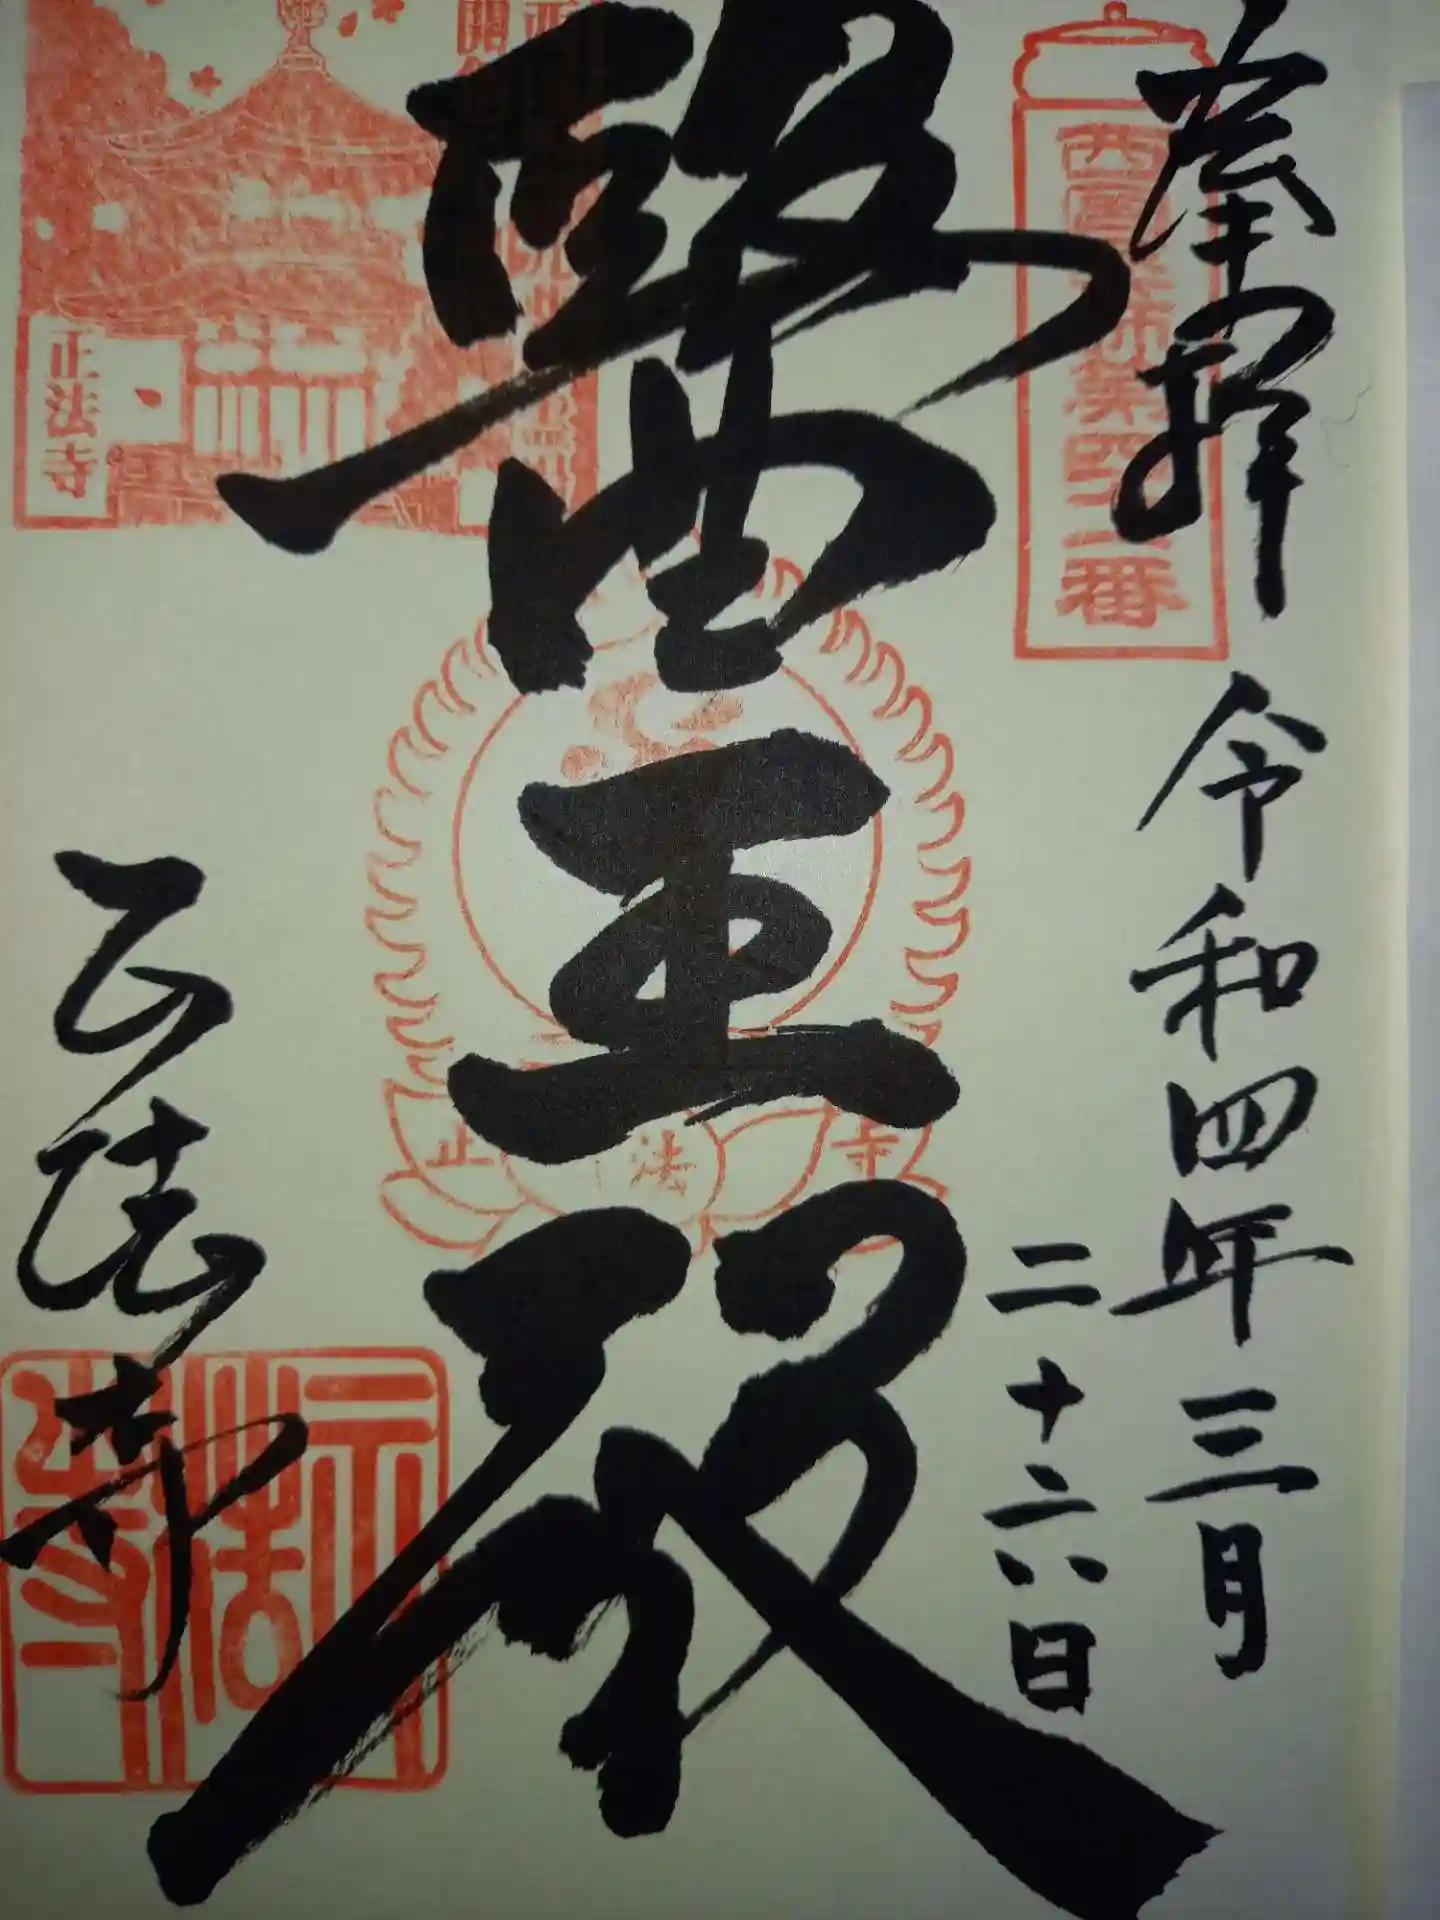 奉拝
令和四年三月
二十六日
西国薬師第四十二番
醫王殿
正法寺
正法寺
正法寺
正法寺